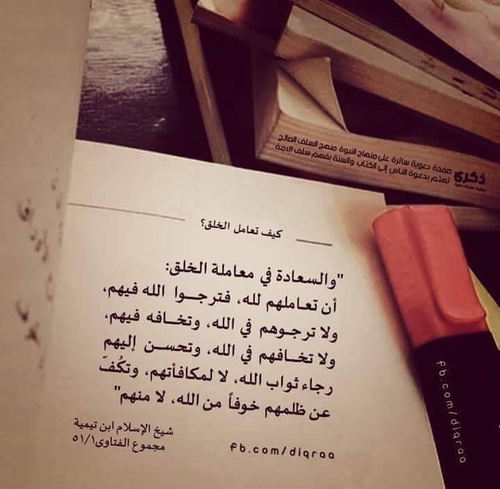 صفحة دعوية سائرة على منهاج النبوة منهج السلف الصالح
تهتم بدعوة الناس إلى الكتاب والسنة بفهم سلف الأمة
ذكرى
كيف تعامل الخلق؟
"والسعادة في معاملة الخلق:
أن تعاملهم لله، فترجـوا الله فيهم،
ولا ترجـوهم في الله، وتخـافه فيهم،
ولا تخـافهم في الله، وتحسـن إليهم
رجاء ثواب الله، لا لمكافأتهم، وتكُفّ
عن ظلمهم خوفاً من الله، لا منهم"
شيخ الإسلام ابن تيمية
مجموع الفتاوى ٥١/١
fb.com/diqraa
fb.com/diqraa